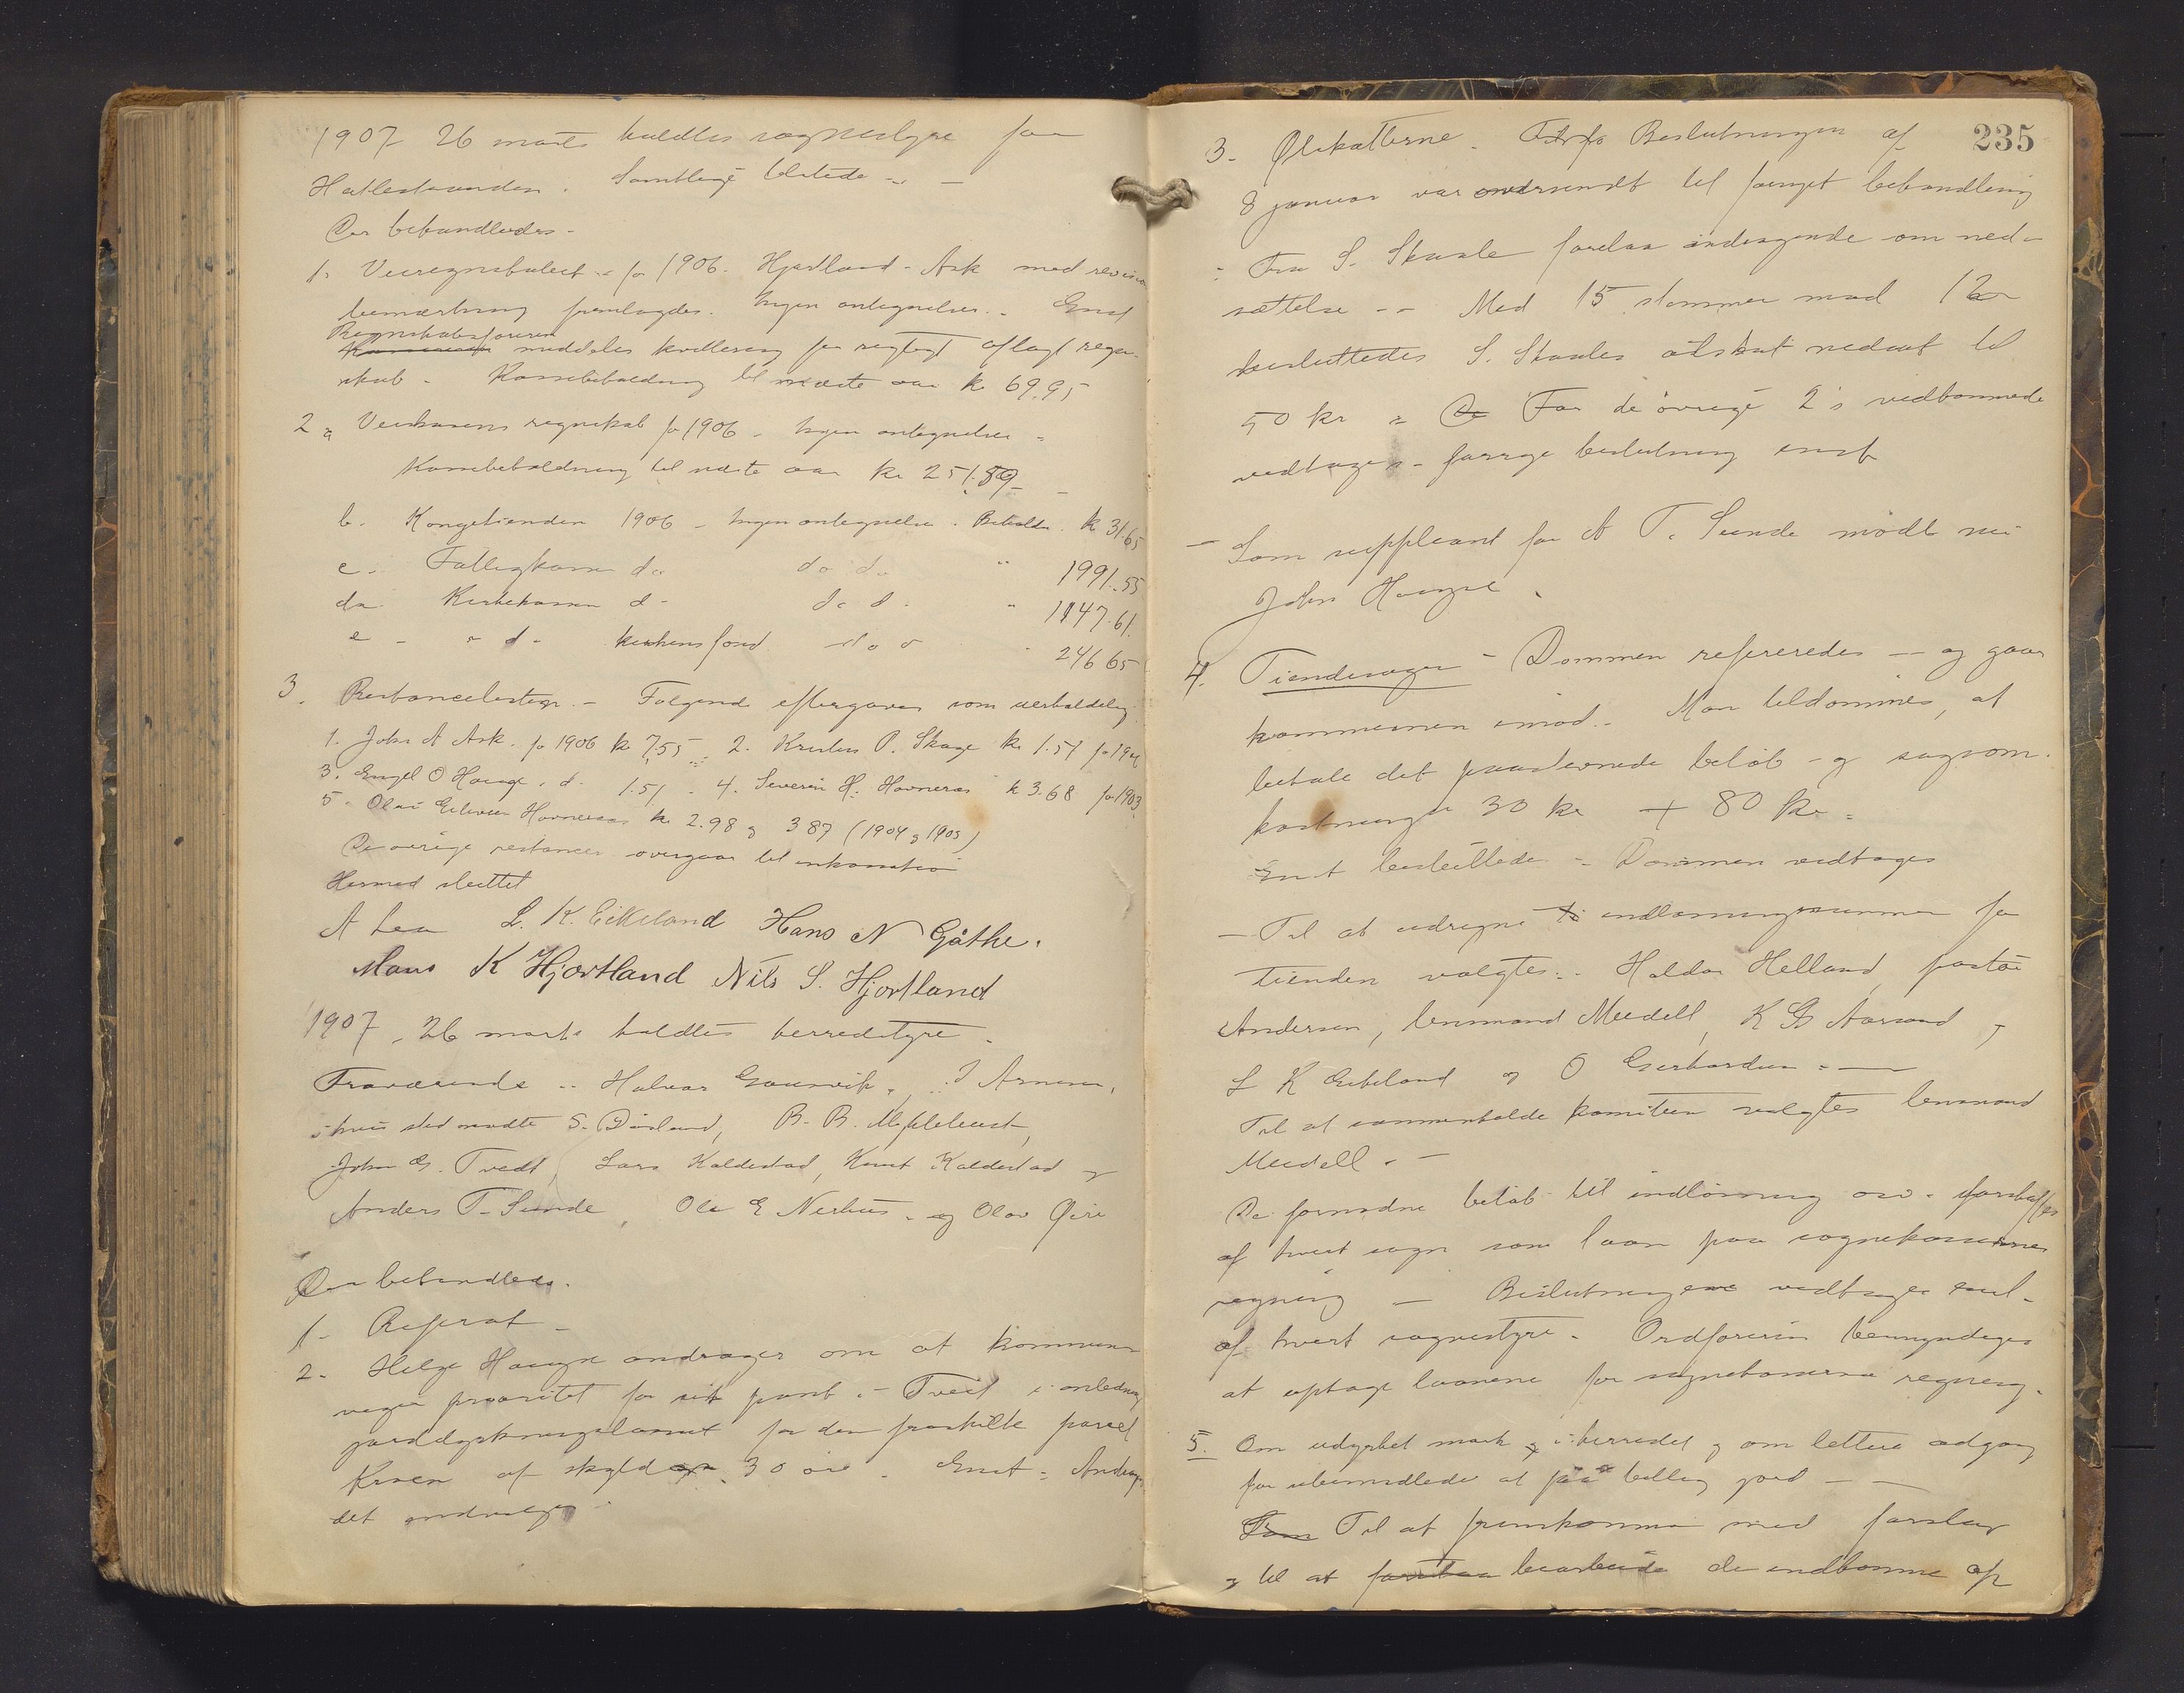 1907 26 marts holdtes sognestyre for
Hatlestranden. Samtlige tilstede
Der behandledes -
1. Veiregnskabet for 1906. Hjortland - Ask med revisions
bemærkning fremlagdes. Ingen antegnelser. Enst
Regnskabsføreren
meddeles kvittering for rigtigt aflagt regn-
skab. Kassebeholdning til næste aar kr 69.95
2 a Veikassens regnskab for 1906 - Ingen antegnelser -
Kassebeholdning til næste aar kr 251.89
b. Kongetienden 1906 - Ingen antegnelser. Beholdn. kr 31.65
c. Fattigkassen do do do " 1991.55
d. Kirkekassen d- do d. " 1147.61.
e - " d - kirkens fond do o " 246 65
3. Restancelisten. - Følgende eftergaves som uerholdelig.
1. John A Ask. for 1906 kr 7,55 2. Kristen P. Skage kr 1.51 for 1904
3. Engel O Hauge. d. 1.51 - 4. Severin H. Havneraas kr 3.68 for 1903
5. Olai Havneraas kr 2.98 og 3 87 (1904 og 1905)
De øvrige restancer overgaar til inkassation
Hermed sluttet
A Lea L. K. Eikeland Hans N Gåthe.
Mons K Hjortland Nils S. Hjortland
1907. 26 marts holdtes herredstyre.
Fraværende - Halvor Gausvik, I Arnesen,
i hvis sted mødte S. Døsland, B. B. Mehlebust,
John G. Tvedt, Lars Kaldestad, Knut Kaldestad og
Anders T. Sunde, Ole E Nerhus og Olav Øire
Der behandledes.
1. Referat -
2. Helge Hauge andrager om at kommunen
viger prioritet for sit pant i Tveit i anledning
jorddyrkningslaanet for den fraskilte parcel
Kroen af skyld 30 øre. Enst. Andragen-
det indvilges
235
3. Ølskatterne. Beslutningen af
8 januar var oversendt til fornyet behandling
Fra S. Skaale forelaa andragende om ned-
sættelse -- Med 15 stemmer mod 12
besluttedes S. Skaales ølskat nedsat til
50 kr For de øvrige 2's vedkommende
vedtages forrige beslutning enst
- Som suppleant for A T. Sunde mødte nu
John Hauge.
4. Tiendesagen - Dommen refereredes - og gaar
kommunen imod. Man tildømmes, at
betale det paastevnede beløb - og sagsom-
kostninger 30 kr + 80 kr.
Enst besluttedes - Dommen vedtages
- Til at udregne indløsningssummen for
tienden valgtes: Haldor Helland, pastor
Andersen, lensmand Meidell, K G Aarsand,
L K Eikeland og O Gerhardsen.
Til at sammenkalde komiteen valgtes lensmand
Meidell. -
De fornødne beløb til indløsning osv. forskaffes
af hvert sogn som laan paa sognekassernes
regning - Beslutningene vedtages enst.
af hvert sognestyre. Ordføreren bemyndiges
at optage laanene for sognekasserne regning.
5. Om udyrket mark i herredet og om lettere adgang
for ubemidlede at faa billig jord - -
Til at fremkomme med forslag
og til at bearbeide de indkomne op